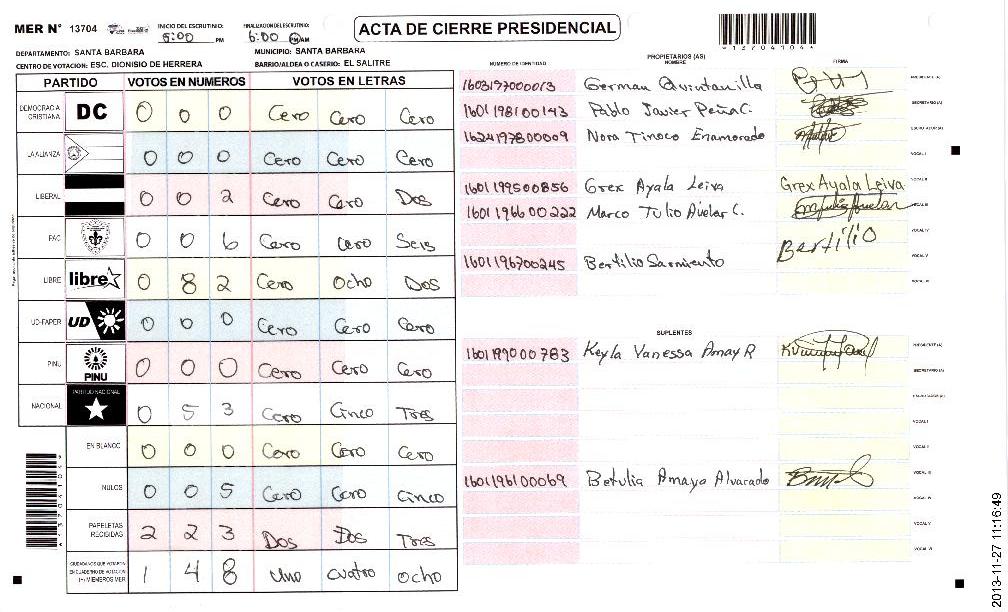 MER N° 13704
INICIO DEL ESCRUTINIO: 5:00 PM
FINALIZACION DEL ESCRUTINIO: 6:00 PM/AM
ACTA DE CIERRE PRESIDENCIAL
DEPARTAMENTO: SANTA BARBARA
MUNICIPIO: SANTA BARBARA
CENTRO DE VOTACION: ESC. DIONISIO DE HERRERA
BARRIO/ALDEA O CASERIO: EL SALITRE
PARTIDO VOTOS EN NUMEROS VOTOS EN LETRAS
DEMOCRACIA CRISTIANA DC 0 0 0 Cero Cero Cero
LA ALIANZA 0 0 0 Cero Cero Cero
LIBERAL 0 0 2 Cero Cero Dos
PAC 0 0 6 Cero Cero Seis
LIBRE libre 0 8 2 Cero Ocho Dos
UD-FAPER UD 0 0 0 Cero Cero Cero
PINU PINU 0 0 0 Cero Cero Cero
NACIONAL PARTIDO NACIONAL 0 5 3 Cero Cinco Tres
EN BLANCO 0 0 0 Cero Cero Cero
NULOS 0 0 5 Cero Cero Cinco
PAPELETAS RECIBIDAS 2 2 3 Dos Dos Tres
CIUDADANOS QUE VOTARON EN CUADERNO DE VOTACION (+) MIEMBROS MER 1 4 8 Uno cuatro ocho
*1370404*
PROPIETARIOS (AS)
NUMERO DE IDENTIDAD NOMBRE FIRMA
1603197000013 German Quintanilla PRESIDENTE (A)
1601198100143 Pablo Javier Peña C. SECRETARIO (A)
1624197800009 Nora Tinoco Enamorado ESCRUTADOR (A)
VOCAL I
1601199500856 Grex Ayala Leiva Grex Ayala Leiva VOCAL II
1601196600222 Marco Tulio Avelar C. VOCAL III
VOCAL IV
1601196700245 Bertilio Sarmiento Bertilio VOCAL V
VOCAL VI
SUPLENTES
1601199000783 Keyla Vanessa Amay R PRESIDENTE (A)
SECRETARIO (A)
ESCRUTADOR (A)
VOCAL I
VOCAL II
1601196100069 Betulia Amaya Alvarado VOCAL III
VOCAL IV
VOCAL V
VOCAL VI
2013-11-27 11:16:49